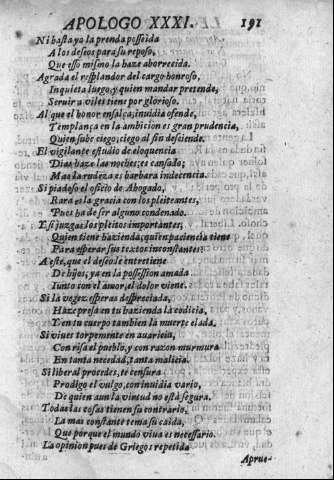 APOLOGO XXXI. 191
Ni hasta ya la prenda posseida
A los deseos para su reposo,
Que esso mismo la haze aborrecida.
Agrada el resplandor del cargo honroso,
Inquieta luego, y quien mandar pretende,
Seruir a viles tiene por glorioso.
Al que el honor ensalça, inuidia ofende,
Templança en la ambicion es gran prudencia,
Quien sube ciego, ciego al fin desciende.
El vigilante estudio de eloquencia
Dias haze las noches; es cansado;
Mas la rudeza es barbara indecencia.
Si piadoso el oficio de Abogado,
Rara es la gracia con los pleiteantes,
Pues ha de ser alguno condenado.
Y si juzgas los pleitos importantes;
Quien tiene hazienda, quien paciencia tiene
Para esperar sus textos inconstantes?
A este, que el deseo le entretiene
De hijos; ya en la possession amada
Iunto con el amor, el dolor viene.
Si la vegez esperas despreciada,
Haze presa en tu hazienda la codicia,
Y en tu cuerpo tambien la muerte elada.
Si viues torpemente en auaricia,
Con risa el pueblo, y con razon murmura
En tanta necedad, tanta malicia.
Si liberal procedes, te censura
Prodigo el vulgo, con inuidia vario,
De quien aun la virtud no está segura.
Todas las cosas tienen su contrario,
La mas constante tema su caida,
Que porque el mundo viua es necessario.
La opinion pues de Griegos repetida
Aprue-